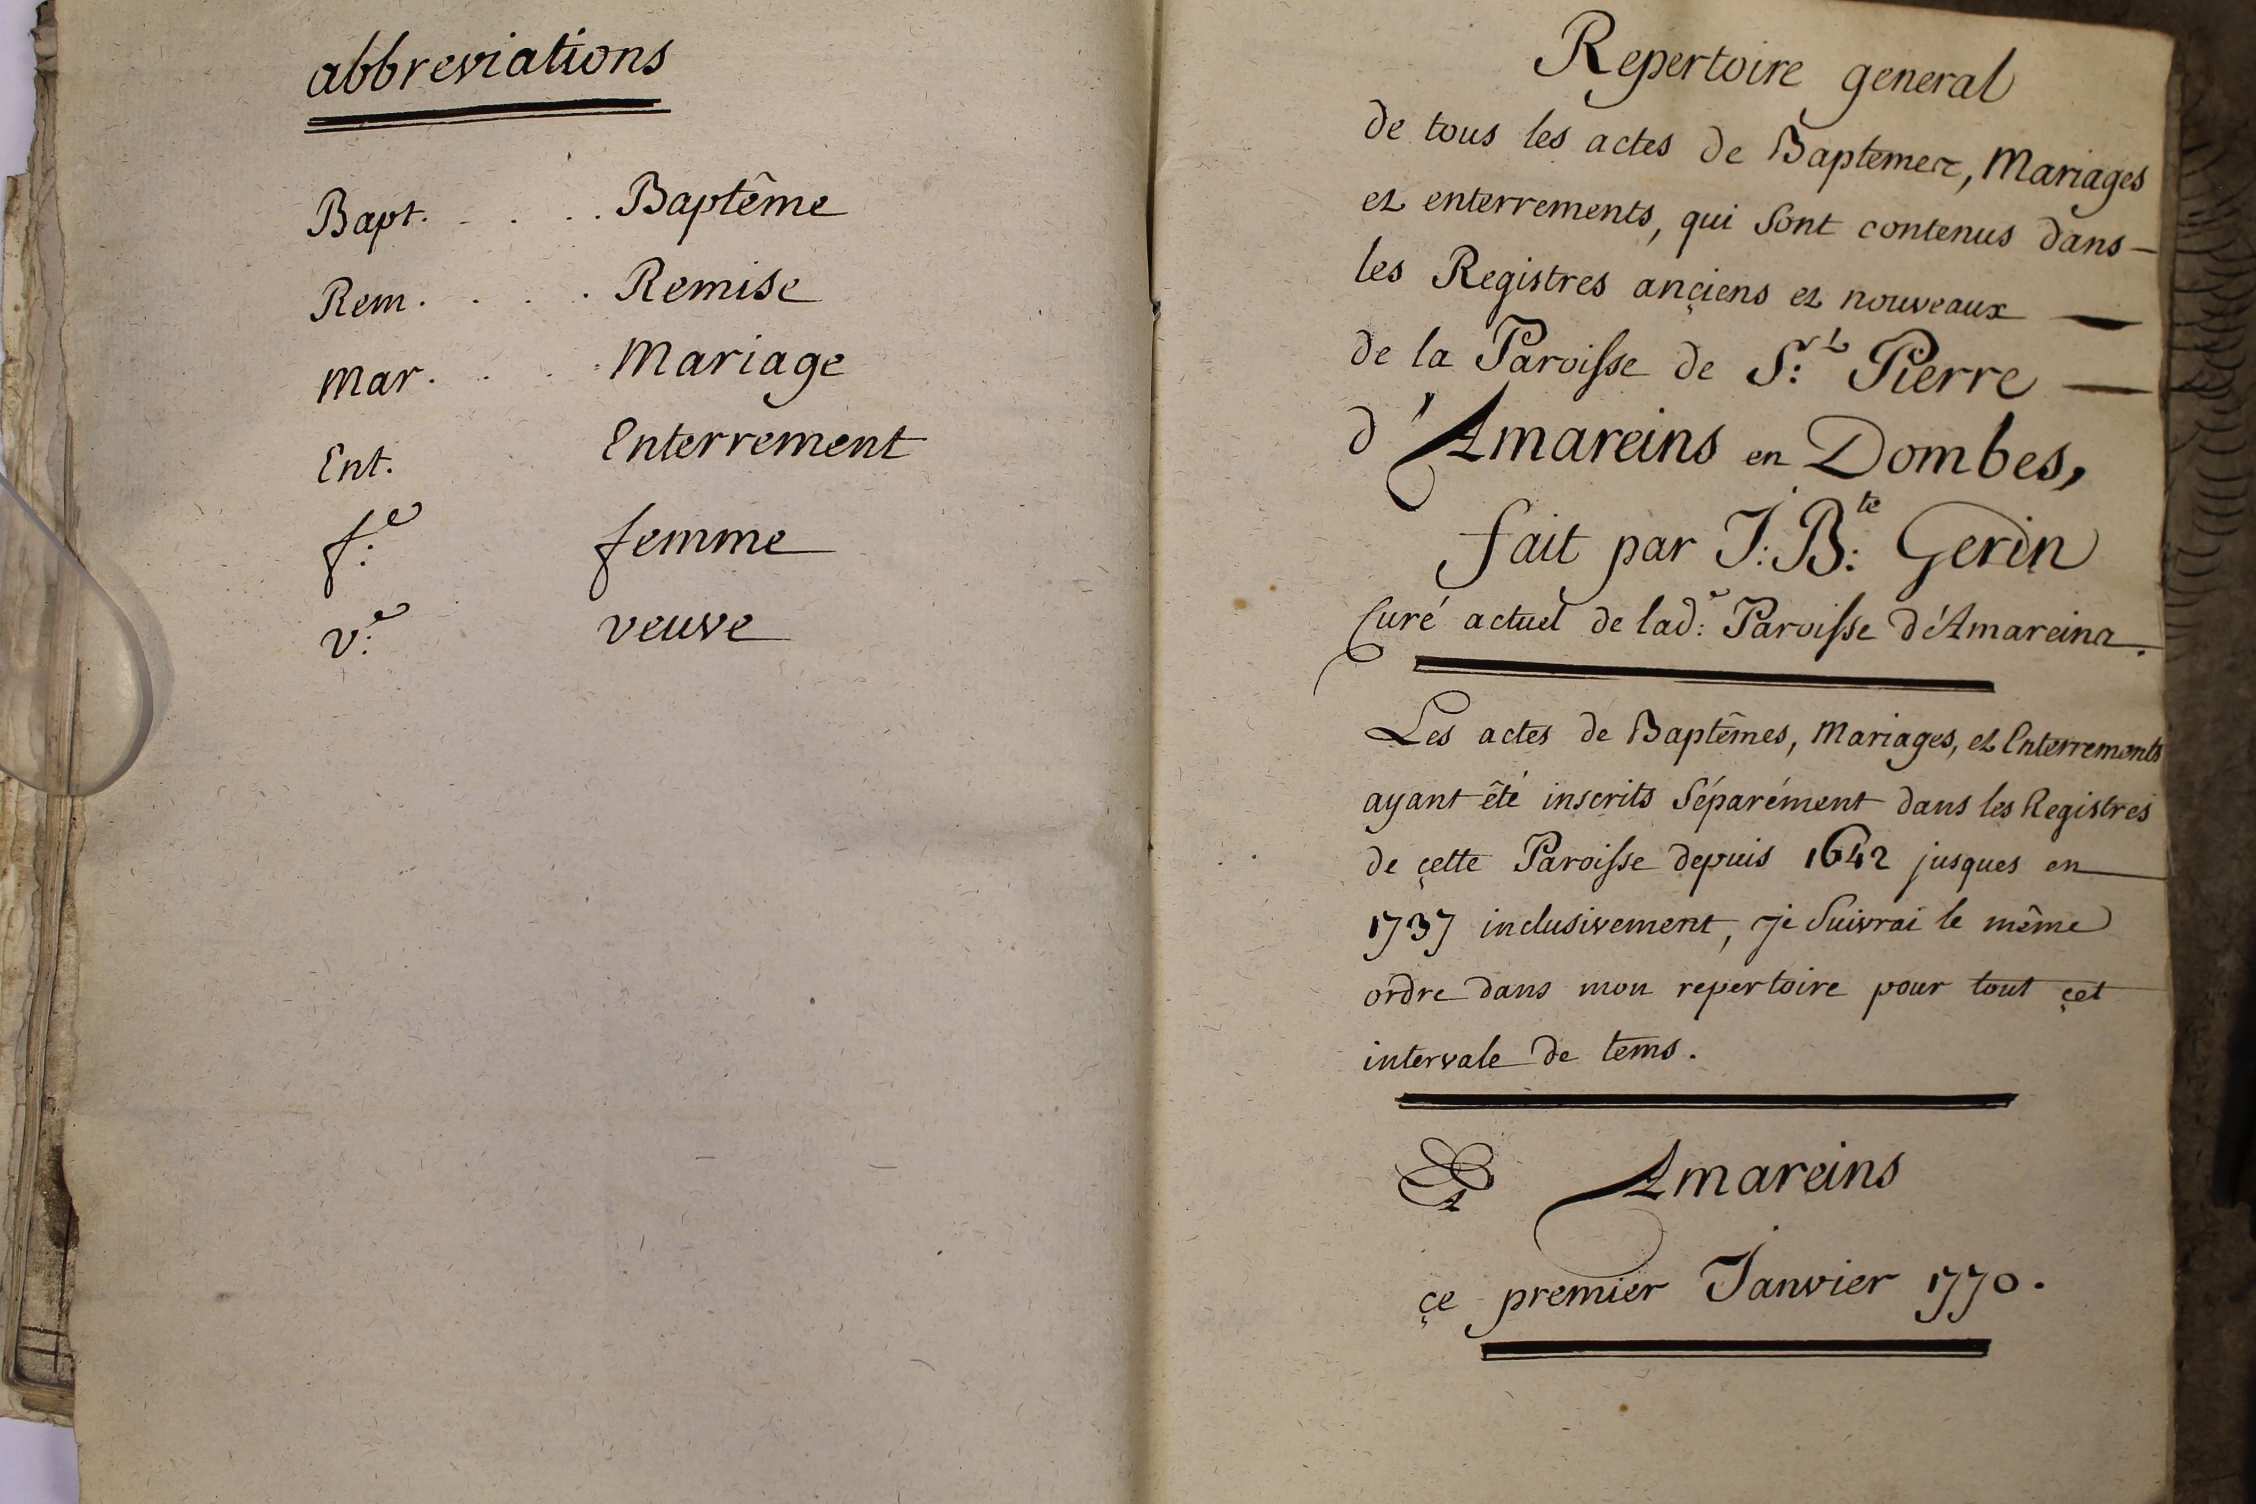 abbreviations
Bapt. . . . Baptême
Rem. . . . Remise
Mar. . . . Mariage
Ent. Enterrement
f:e femme
v:e veuve
Repertoire general
de tous les actes de Baptemes, Mariages
et enterrements, qui sont contenus dans —
les Registres ançiens et nouveaux —
de la Paroisse de S:t Pierre —
d'Amareins en Dombes,
fait par J: B:te Gerin
Curé actuel de lad:e Paroisse d'Amareins.
Les actes de Baptêmes, Mariages, et Enterrements
ayant êté inscrits séparément dans les Registres
de çette Paroisse depuis 1642 jusques en
1737 inclusivement, je suivrai le même
ordre dans mon repertoire pour tout çet
intervale de tems.
A Amareins
çe premier Janvier 1770.